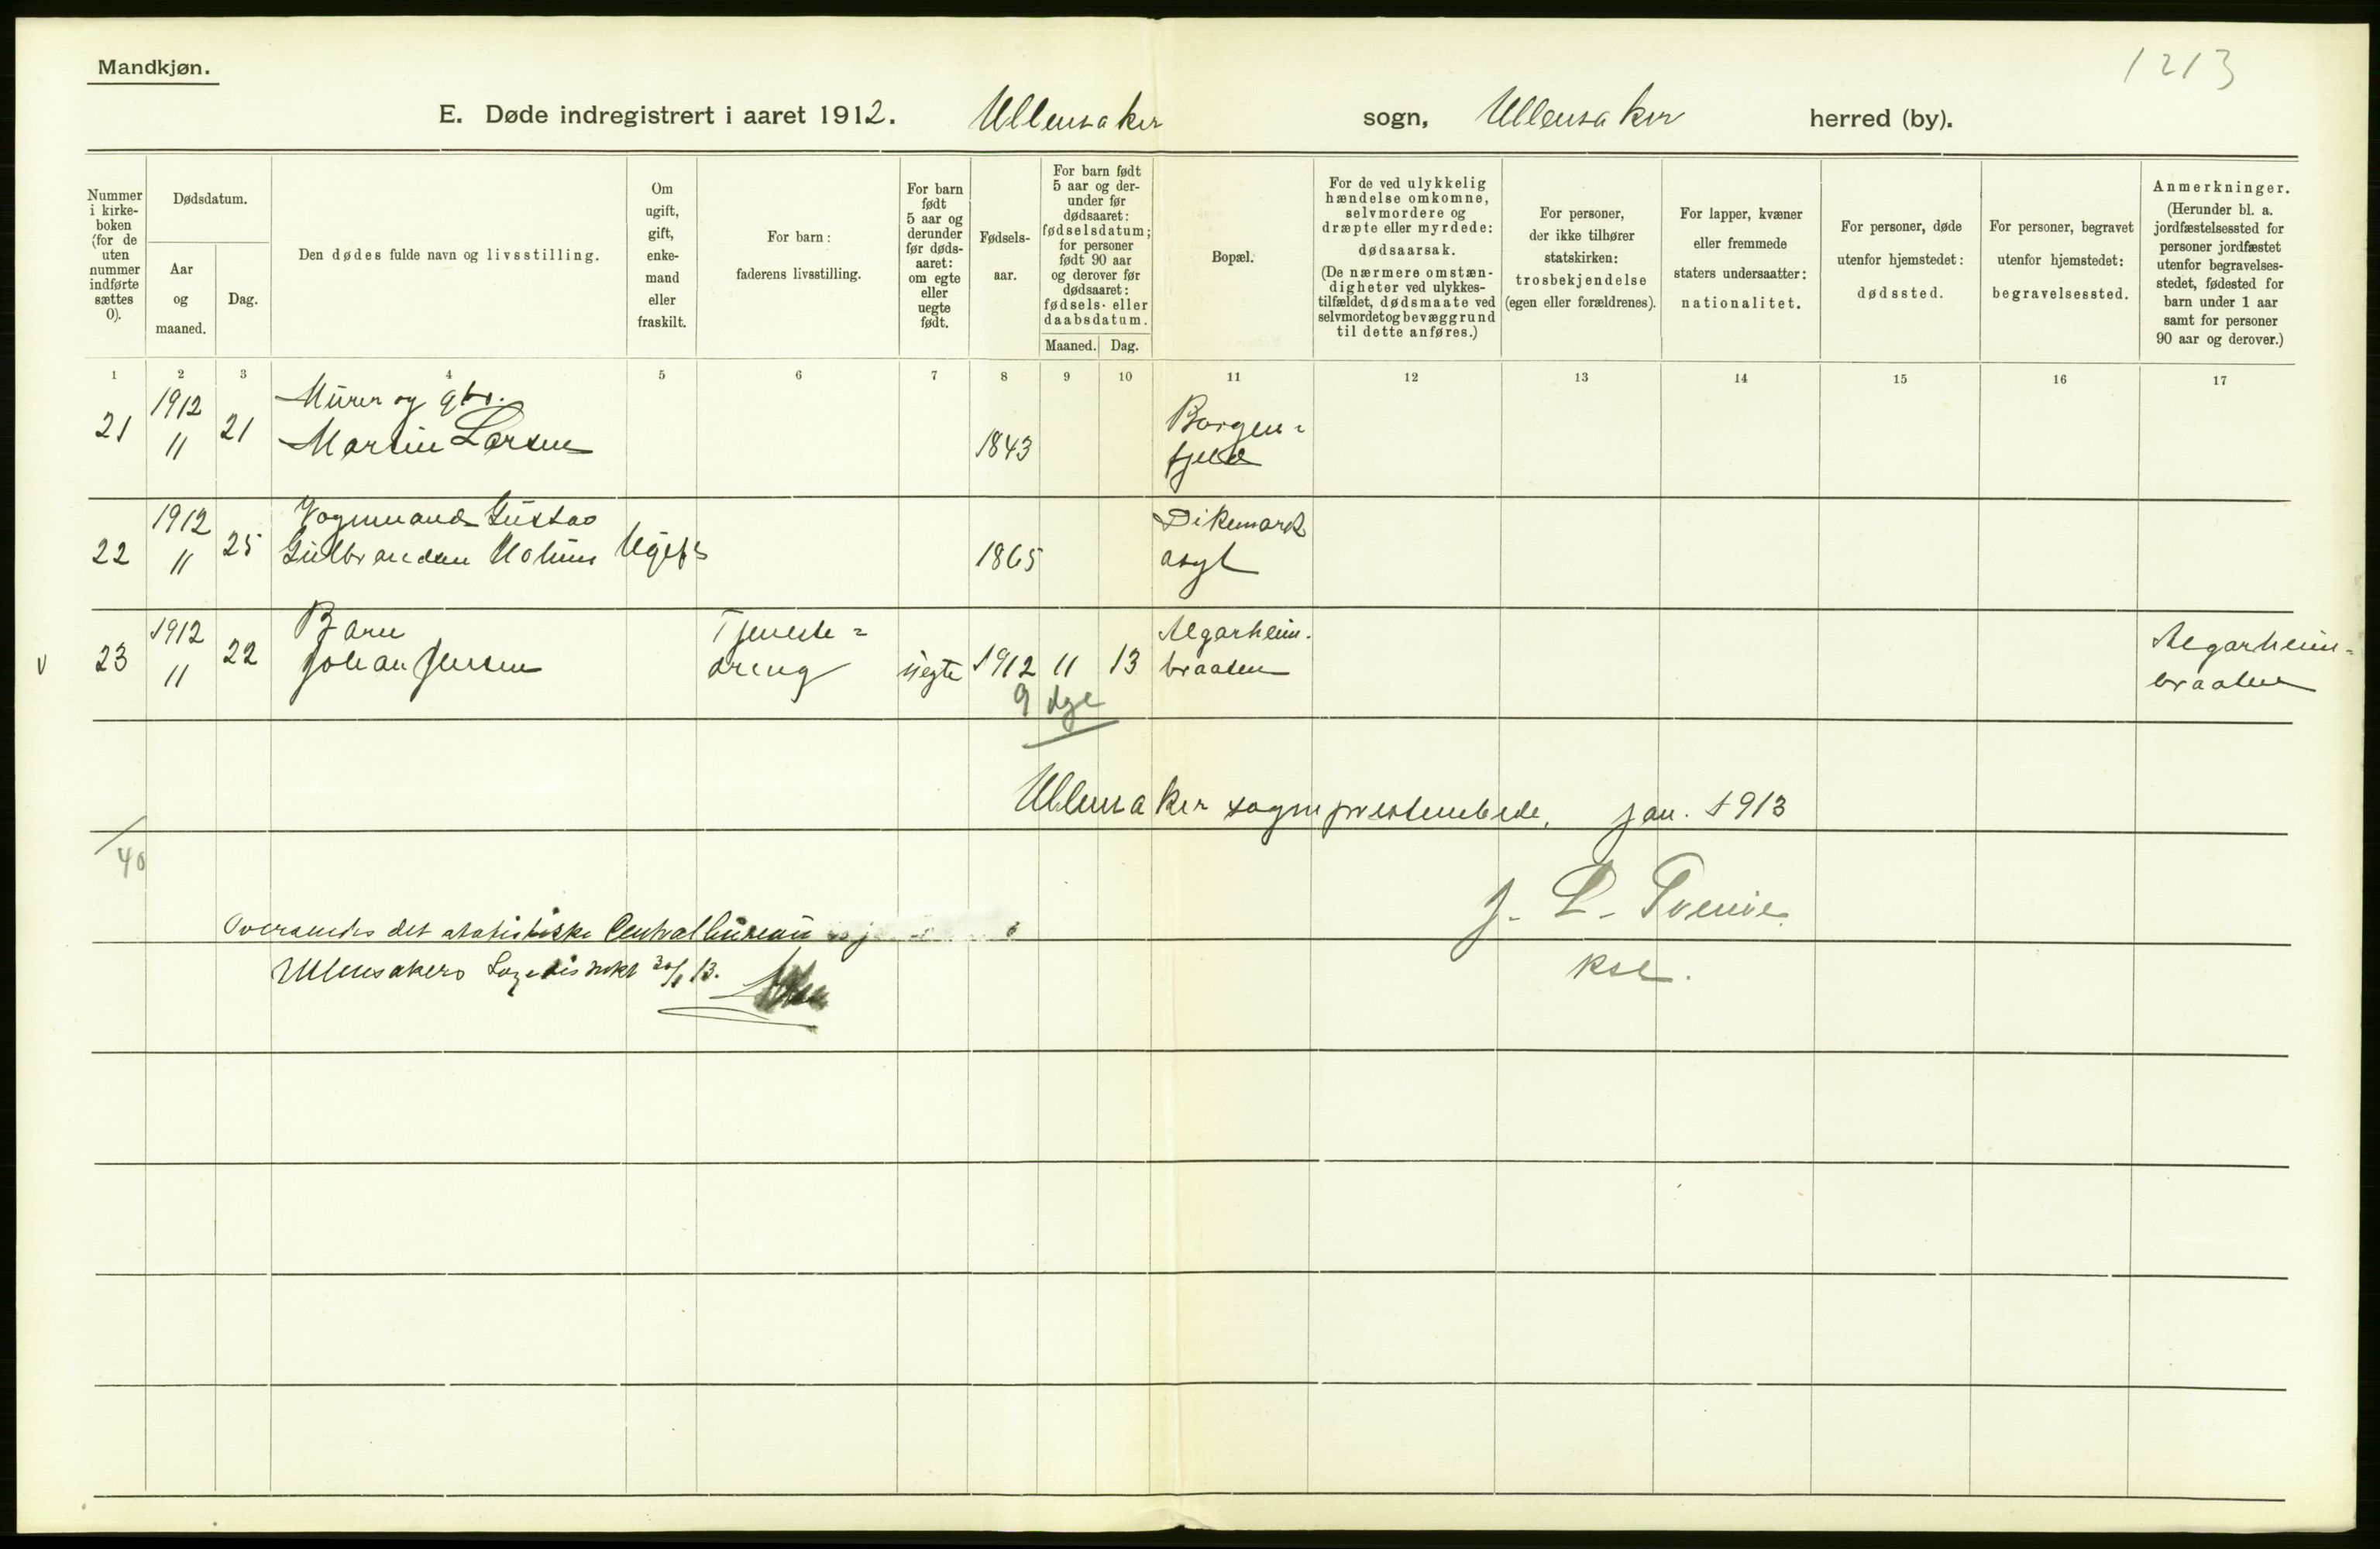 Mandkjøn.
1213
E. Døde indregistrert i aaret 1912. Ullensaker sogn, Ullensaker herred (by).
Nummer i kirke-boken (for de uten nummer indførte sættes 0).
Dødsdatum.
Aar og maaned.
Dag.
Den dødes fulde navn og livsstilling.
Om ugift, gift, enke-mand eller fraskilt.
For barn: faderens livsstilling.
For barn født 5 aar og derunder før døds-aaret: om egte eller uegte født.
Fødsels-aar.
For barn født 5 aar og der-under før dødsaaret: fødselsdatum; for personer født 90 aar og derover før dødsaaret: fødsels- eller daabsdatum.
Maaned. Dag.
Bopæl.
For de ved ulykkelig hændelse omkomne, selvmordere og dræpte eller myrdede: dødsaarsak. (De nærmere omstæn-digheter ved ulykkes-tilfældet, dødsmaate ved selvmordet og bevæggrund til dette anføres.)
For personer, der ikke tilhører statskirken: trosbekjendelse (egen eller forældrenes).
For lapper, kvæner eller fremmede staters undersaatter: nationalitet.
For personer, døde utenfor hjemstedet: dødssted.
For personer, begravet utenfor hjemstedet: begravelsessted.
Anmerkninger. (Herunder bl. a. jordfæstelsessted for personer jordfæstet utenfor begravelses-stedet, fødested for barn under 1 aar samt for personer 90 aar og derover.)
1 2 3 4 5 6 7 8 9 10 11 12 13 14 15 16 17
1912 Murer og gbr. Borgen-
21 11 21 Martin Larsen 1843 fjeld
1912 Vognmand Gustav Dikemark
22 11 25 Gulbrandsen Holum Ugift 1865 asyl
1912 Barn Tjeneste- Algarheim- Algarheim-
v 23 11 22 Johan Jensen dreng uegte 1912 11 13 braaten braaten
9 dge
Ullensaker sogneprestembede, jan. 1913
/40
J. L. Tvenie
ksl.
Oversendes det statistiske Centralbureau
Ullensakers Lægedistrikt 30/1 13.